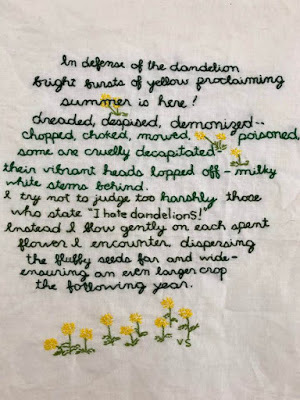 In defense of the dandelion
bright bursts of yellow proclaiming
summer is here!
dreaded, despised, demonized--
chopped, choked, mowed, poisoned,
some are cruelly decapitated
their vibrant heads lopped off - milky
white stems behind.
I try not to judge too harshly those
who state "I hate dandelions!"
Instead I blow gently on each spent
flower I encounter dispersing
the fluffy seeds far and wide-
ensuring an even larger crop
the following year.
VS